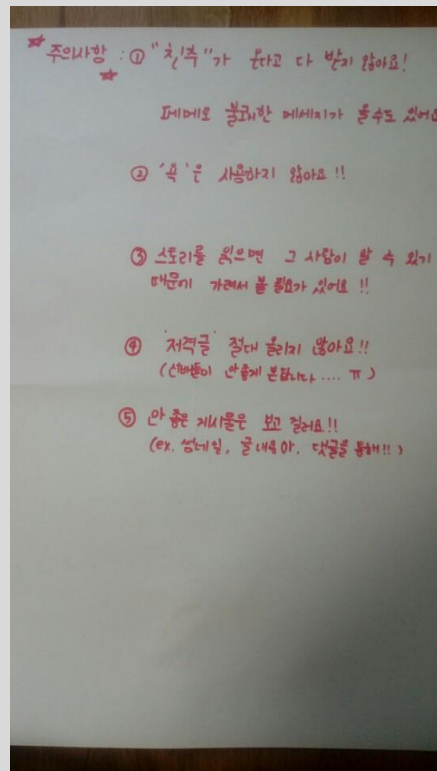 주의사항 : ① "친추"가 온다고 다 받지 않아요!
페메로 불쾌한 메세지가 올 수도 있어요
② '콕'은 사용하지 않아요 !!
③ 스토리를 읽으면 그 사람이 알 수 있기
때문에 가려서 볼 필요가 있어요 !!
④ '저격글' 절대 올리지 않아요!!
(선배들이 안좋게 본답니다.... ㅠ)
⑤ 안 좋은 게시물은 보고 걸러요!!
(ex. 썸네일, 글내용이나, 댓글을 통해!!)